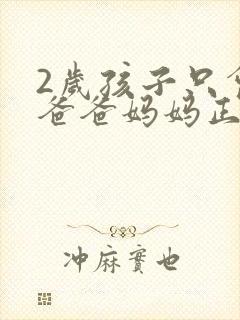 2歲孩子只
爸爸妈妈正
冲麻實也